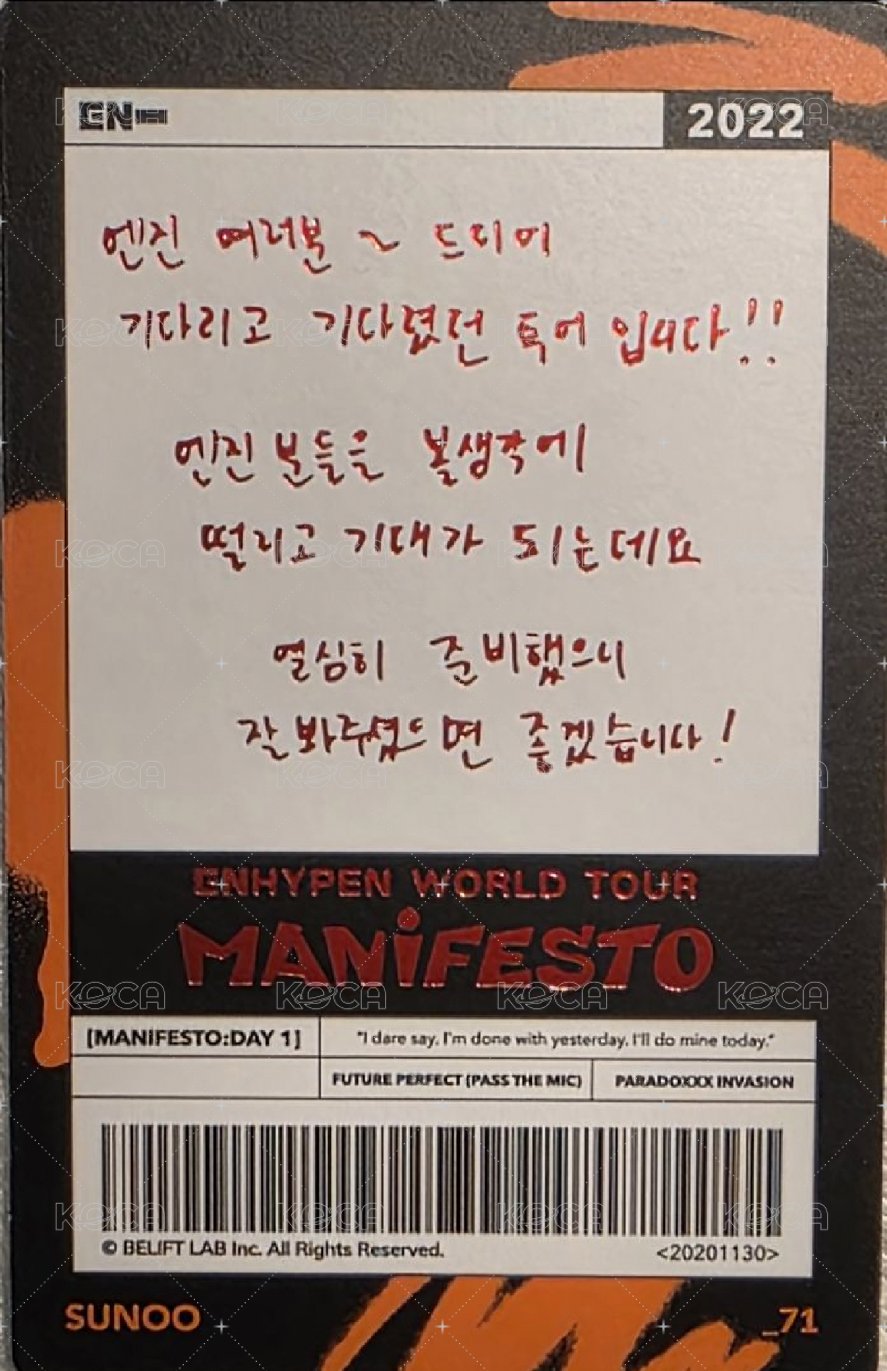 EN
2022
엔진 여러분 ~ 드디어
기다리고 기다렸던 투어 입니다!!
엔진 분들을 볼생각에
떨리고 기대가 되는데요
열심히 준비했으니
잘 봐주셨으면 좋겠습니다!
ENHYPEN WORLD TOUR
MANiFESTO
[MANIFESTO:DAY 1]
"I dare say. I'm done with yesterday. I'll do mine today."
FUTURE PERFECT (PASS THE MIC)
PARADOXXX INVASION
© BELIFT LAB Inc. All Rights Reserved.
<20201130>
SUNOO
_71
KOCA